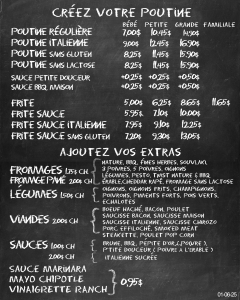 CRÉEZ VOTRE POUTINE
BÉBÉ PETITE GRANDE FAMILIALE
POUTINE RÉGULIÈRE 7,00$ 10,45$ 14,90$
POUTINE ITALIENNE 9,00$ 12,45$ 16,90$
POUTINE SANS GLUTEN 8,25$ 11,45$ 15,90$
POUTINE SANS LACTOSE 8,25$ 11,45$ 15,90$
SAUCE PETITE DOUCEUR +0,25$ +0,50$ +0,50$
SAUCE BBQ, MAISON +0,25$ +0,50$ +0,50$
FRITE 5,00$ 6,25$ 8,65$ 11,65$
FRITE SAUCE 5,95$ 7,10$ 10,00$
FRITE SAUCE ITALIENNE 7,95$ 9,10$ 12,25$
FRITE SAUCE SANS GLUTEN 7,20$ 9,30$ 13,05$
AJOUTEZ VOS EXTRAS
NATURE, BBQ, FINES HERBES, SOUVLAKI,
FROMAGES 1,75$ CH 3 POIVRES, 5 POIVRES, OIGNONS
LÉGUMES, PESTO, TWIST NATURE & BBQ
FROMAGE RÂPÉ 2,00$ CH ÉRABLE, CHEDDAR RÂPÉ, FROMAGE SANS LACTOSE
LÉGUMES 1,50$ CH OIGNONS, OIGNONS FRITS, CHAMPIGNONS,
POIVRONS, PIMENTS FORTS, POIS VERTS,
ÉCHALOTES
BOEUF HACHÉ, BACON, POULET
VIANDES 2,00$ CH SAUCISSE BACON, SAUCISSE MAISON
SAUCISSE ITALIENNE, SAUCISSE CHORIZO
PORC EFFILOCHÉ, SMOKED MEAT
STEAKETTE, POULET POP CORN
SAUCES 1,00$ CH BRUNE, BBQ, PÉPITE D'OR, (POIVRE),
PTITE DOUCEUR (POIVRE À L'ÉRABLE)
2,00$ CH ITALIENNE SUCRÉE
SAUCE MARINARA
MAYO CHIPOTLE 0,95$
VINAIGRETTE RANCH
01-06-25